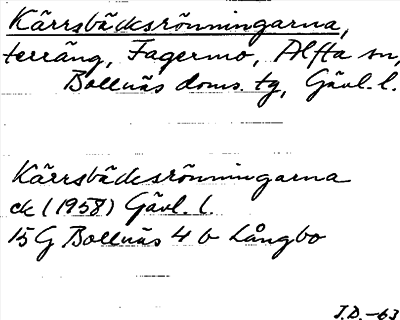 Kärrsbäcksrönningarna,
terräng, Fagermo, Alfta sn,
Bollnäs doms. tg, Gävl. l.
Kärrsbäcksrönningarna
ek (1958) Gävl. l.
15 G Bollnäs 4 b Långbo
J.D.-63